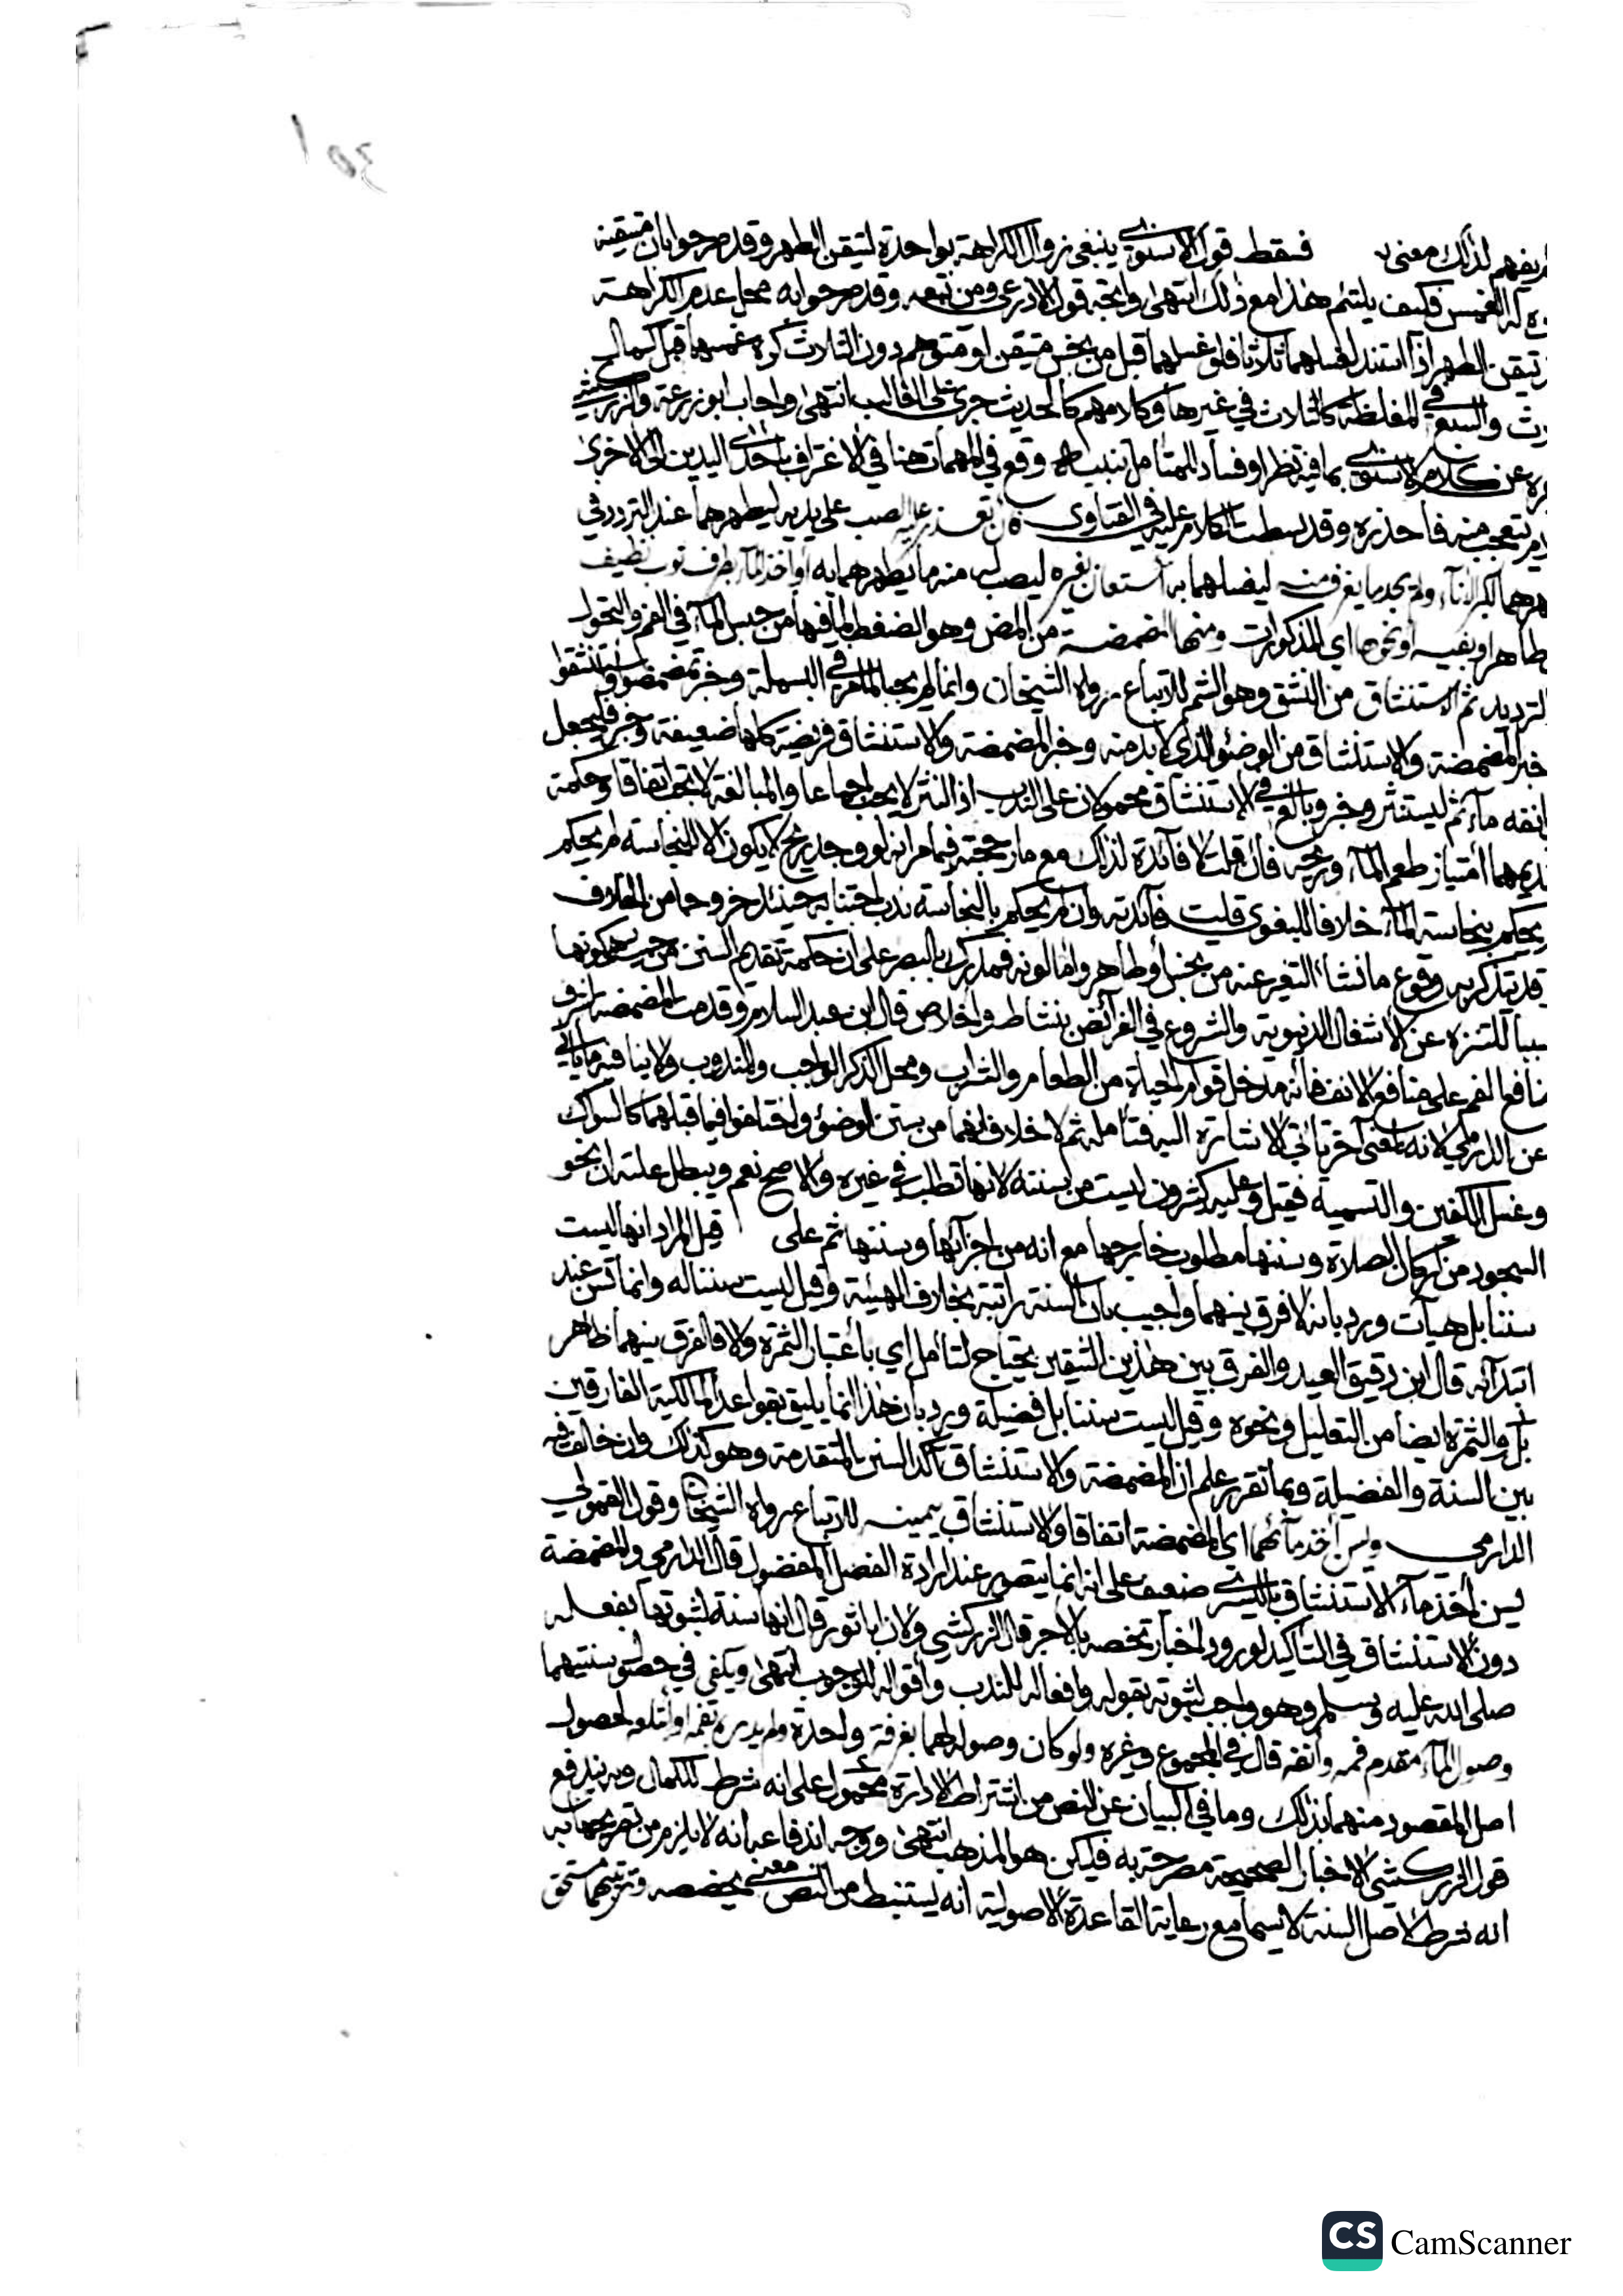 يفهم لذلك معنى فسقط قول الاسنوي ينبغي زوال الكراهة بواحدة لتيقن الطهر وقد صرحوا بان متيقنه
له الغمس فكيف يلتئم هذا مع ذلك انتهى واتجه قول الاذرعي ومن تبعه وقد صرحوا به محل عدم الكراهة
تيقن الطهر اذا استند لغسلهما ثلاثا فلو غسلهما قبل من نجس متيقن او متوهم دون الثلاث كره غمسهما قبل كمال
والسبع في المغلظة كالثلاث في غيرها وكلامهم كالحديث جرى على الغالب انتهى واجاب ابو زرعة والزركشي
عن كلام الاسنوي بما فيه نظر او فساد للمتأمل تنبيه وقع في المهمات هنا في الاغتراف باحدى اليدين الى الاخرى
يتعجب منه فاحذره وقد بسطت الكلام عليه في الفتاوى تعذر عليه الصب على يديه ليطهرهما عند التردد في
هرهما لكبر الاناء ولم يجد ما يغرف منه ليغسلهما به استعان بغيره ليصب له منه ما يطهرهما به او اخذ الماء بطرف ثوب نظيف
طاهر او بفيه او نحوها اي المذكورات ومنها المضمضة من المض وهو الضغط لما فيها من حبس الماء في الفم والتحول
لترديد ثم الاستنشاق من النشق وهو الشم للاتباع رواه الشيخان وانما لم يجبا لما مر في البسملة وخبر تمضمضوا واستنشقوا
خبر المضمضة والاستنشاق من الوضوء الذي لا بد منه وخبر المضمضة والاستنشاق فريضة كلها ضعيفة وخبر فليجعل
انفه ماء ثم ليستنثر وخبر وبالغ في الاستنشاق محمولان على الندب اذ النثر لا يجب اجماعا والمبالغة لا تجب اتفاقا وحكمة
ديمهما امتياز طعم الماء وريحه فان قلت لا فائدة لذلك مع ما رجحته فيما مر انه لو وجد ريح لا يكون الا للنجاسة لم يحكم
يحكم بنجاسة الماء خلافا للبغوي قلت فائدته وان لم يحكم بالنجاسة ندب اجتنابه حينئذ خروجا من الخلاف
قد يتذكر به وقوع ما نشأ التغير عنه من نجس او طاهر واما لونه فمدرك بالبصر على ان حكمة تقديم السنن من حيث هي كونها
سببا للتنزه عن الاشغال الدنيوية والشروع في الفرائض بنشاط واخلاص قال ابن عبد السلام وقدمت المضمضة لشرف
منافع الفم على منافع الانف فانه مدخل قوام الحياة من الطعام والشراب ومحل الذكر الواجب والمندوب ولا ينافيه ما يأتي
عن الدارمي لانه لمعنى آخر تأتي الاشارة اليه فتأمله ثم لا خلاف انهما من سنن الوضوء واختلفوا فيما قبلهما كالسواك
وغسل الكفين والتسمية فقيل وعليه كثيرون ليست من سننه لانها تطلب في غيره والاصح نعم ويبطل علته ان نحو
السجود من اركان الصلاة وسننها مطلوب خارجها مع انه من اجزائها وسننها ثم على قيل المراد انها ليست
سننا بل هيآت ورد بانه لا فرق بينهما واجيب بان السنة راتبة بخلاف الهيئة وقيل ليست سننا له وانما تسن عند
ابتدائه قال ابن دقيق العيد والفرق بين هذين الشيئين يحتاج لتأمل اي باعتبار الثمرة والا فالفرق بينهما ظاهر
بل والثمرة ايضا من التعليل ونحوه وقيل ليست سننا بل فضيلة ورد بان هذا انما يليق بقواعد المالكية الفارقين
بين السنة والفضيلة وبما تقرر علم ان المضمضة والاستنشاق آكد السنن المتقدمة وهو كذلك وان خالف فيه
الدارمي وليس اخذ مائهما اي المضمضة اتفاقا والاستنشاق بيمينه للاتباع رواه الشيخان وقول القمولي
ليس اخذ ماء الاستنشاق باليسرى ضعيف على انه انما يتصور عند ارادة الفصل المفضول قال الدارمي والمضمضة
دون الاستنشاق في التأكيد لورود اخبار تخصه بالاجر قال الزركشي ولان ابا ثور قال انها سنة لثبوتها بفعله
صلى الله عليه وسلم وهو واجب لثبوته بقوله وافعاله للندب واقواله للوجوب انتهى ويكفي في حصول سنتيهما
وصول الماء مقدم فمه وانفه قال في المجموع وغيره ولو كان وصوله لهما بغرفة واحدة ولم يديره بفمه او ابتلعه لحصول
اصل المقصود منهما بذلك وما في البيان عن النص من اشتراط الادارة محمول على انه شرط للكمال وبه يندفع
قول الزركشي الاخبار الصحيحة مصرحة به فليكن هو المذهب انتهى ووجه اندفاعه انه لا يلزم من تصريحها به
انه شرط لاصل السنة لا سيما مع رعاية القاعدة الاصولية انه يستنبط من النص معنى يخصصه وترتيبهما مستحق
CS CamScanner